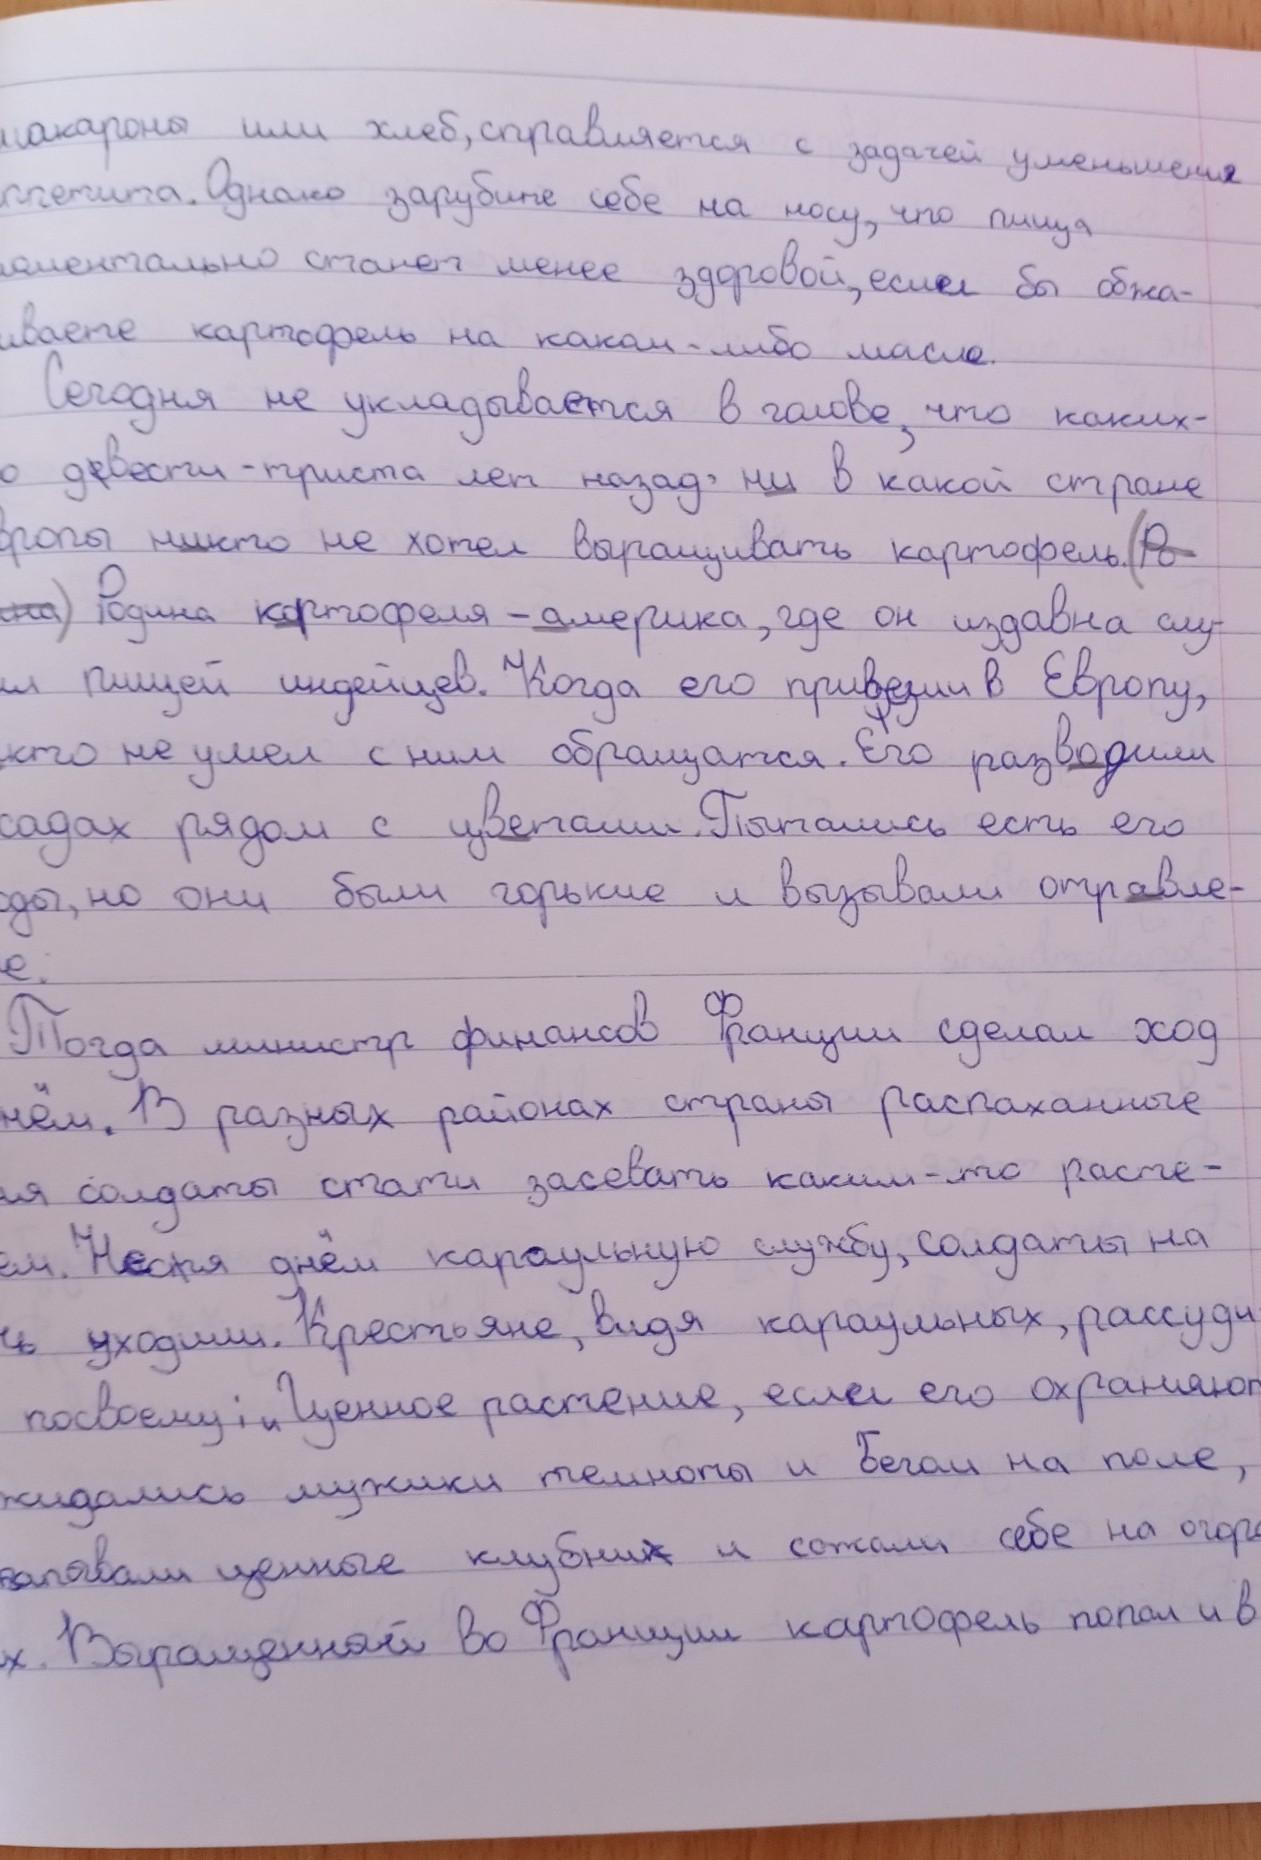 макароны или хлеб, справляется с задачей уменьшения
ппетита. Однако зарубите себе на носу, что пища
моментально станет менее здоровой, если бы обжа-
иваете картофель на каком-либо масле.
Сегодня не укладывается в голове, что каких-
о двести-триста лет назад ни в какой стране
вропы никто не хотел выращивать картофель. (Ро-
ина) Родина картофеля - америка, где он издавна слу-
ил пищей индейцев. Когда его привезли в Европу,
кто не умел с ним обращатся. Его разводили
садах рядом с цветами. Пытались есть его
оды, но они были горькие и вызывали отравле-
е.
Тогда министр финансов Франции сделал ход
нём. В разных районах страны распаханные
ля солдаты стати засевать каким-то расте-
ем. Неся днём караульную службу, солдаты на
чь уходили. Крестьяне, видя караульных, рассуди
посвоему: „Ценное растение, если его охраняют
жидались мужики темноты и бегом на поле,
капывали ценные клубни и сажали себе на огоро
х. Выращенный во Франции картофель попал и в